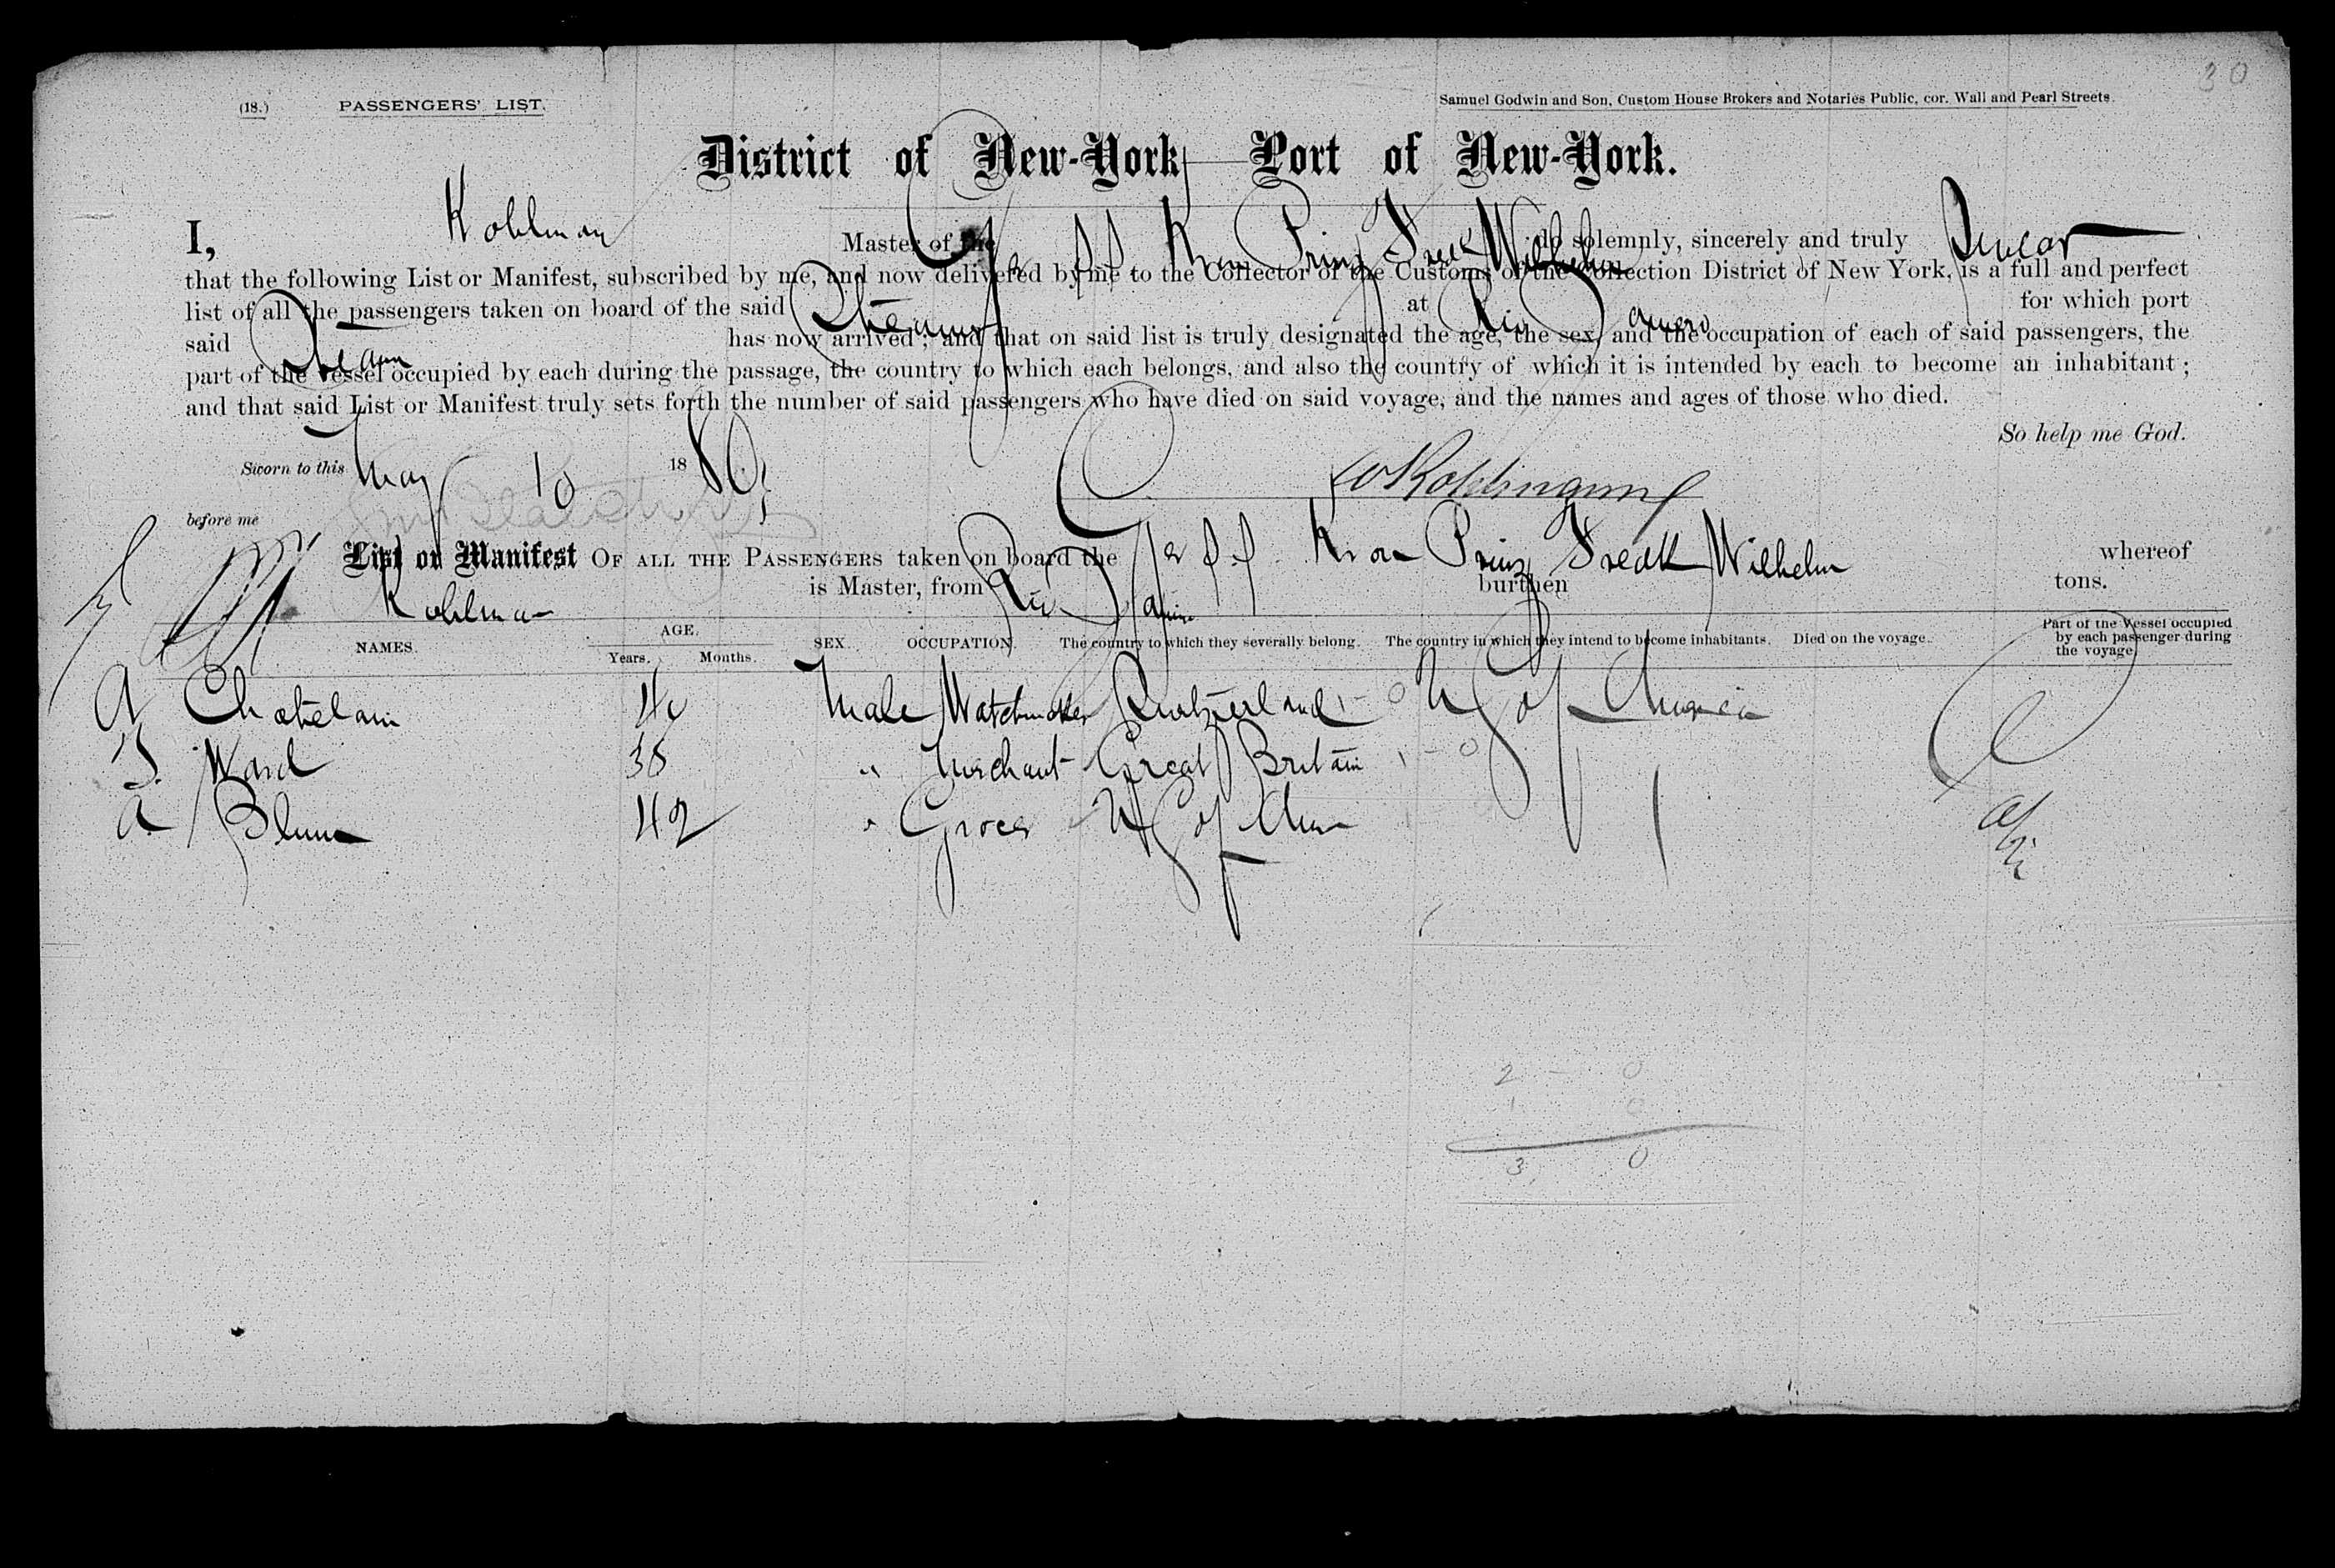 30
(18.) PASSENGERS' LIST. Samuel Godwin and Son, Custom House Brokers and Notaries Public, cor. Wall and Pearl Streets.
District of New-York Port of New-York.
I, Kohlman Master of the Ger SS Kron Prinz Fredk Wilhelm do solemnly, sincerely and truly Swear
that the following List or Manifest, subscribed by me, and now delivered by me to the Collector of the Customs of the Collection District of New York, is a full and perfect
list of all the passengers taken on board of the said Steamer at Rio Janeiro for which port
said Steamr has now arrived; and that on said list is truly designated the age, the sex, and the occupation of each of said passengers, the
part of the vessel occupied by each during the passage, the country to which each belongs, and also the country of which it is intended by each to become an inhabitant;
and that said List or Manifest truly sets forth the number of said passengers who have died on said voyage, and the names and ages of those who died.
So help me God.
Sworn to this May 10 18
before me
List or Manifest OF ALL THE PASSENGERS taken on board the Ger SS Kron Prinz Fredk Wilhelm whereof
Kohlman is Master, from Rio burthen tons.
NAMES. AGE. Years. Months. SEX. OCCUPATION. The country to which they severally belong. The country in which they intend to become inhabitants. Died on the voyage. Part of the Vessel occupied by each passenger during the voyage
A Chatelain Male Watchmaker Switzerland 1 - 0 U S of America
Ward 38 " Merchant Great Britain 1 - 0
A. Blum 42 " Grocer U S of Am
2 - 0
1 0
3 0